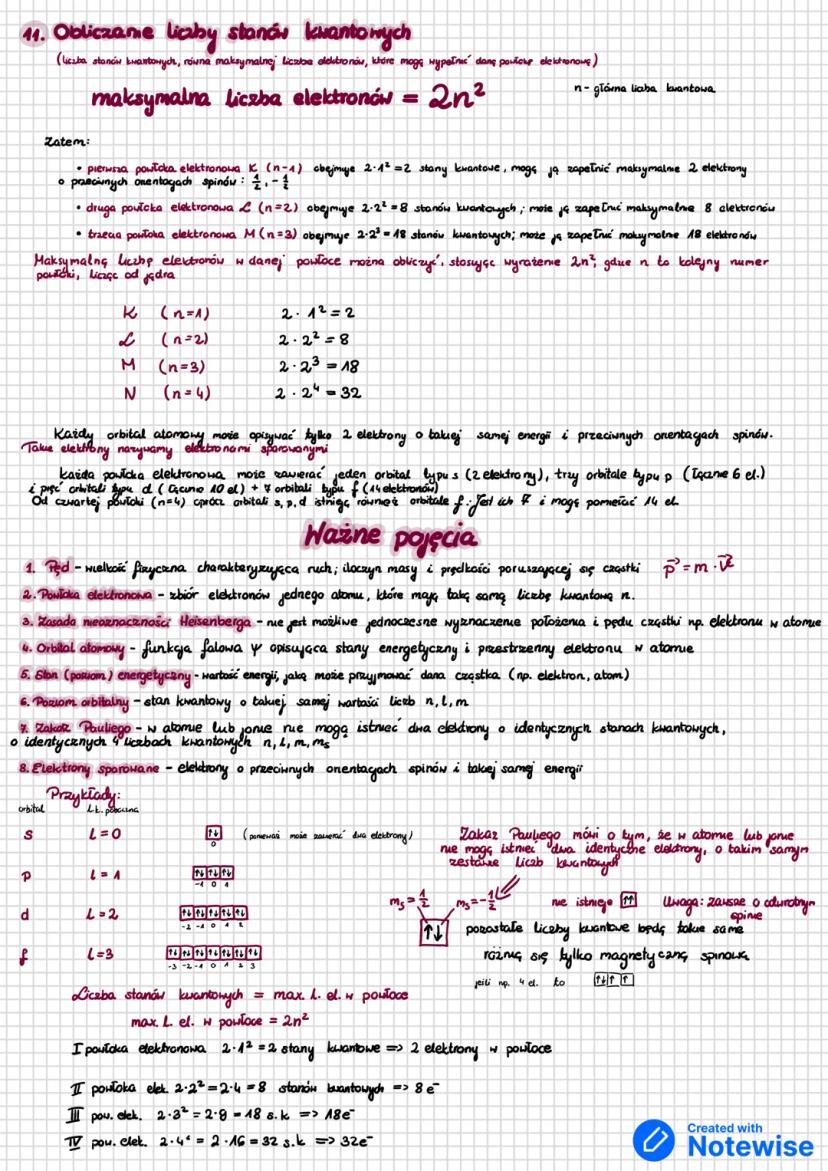 11. Obliczanie liczby stanów kwantowych
(liczba stanów kwantowych, równa maksymalnej liczbie elektronów, które mogą wypełnić daną powłokę elektronową)
maksymalna liczba elektronów = 2n²
n - główna liczba kwantowa
Zatem:
• pierwsza powłoka elektronowa K (n-1) obejmuje 2·1² = 2 stany kwantowe, mogą ją zapełnić maksymalnie 2 elektrony
o przeciwnych orientacjach spinów: 1/2, -1/2
• druga powłoka elektronowa L (n=2) obejmuje 2·2² = 8 stanów kwantowych; może ją zapełnić maksymalnie 8 elektronów
• trzecia powłoka elektronowa M (n=3) obejmuje 2·2³ = 18 stanów kwantowych; może ją zapełnić maksymalnie 18 elektronów
Maksymalną liczbę elektronów w danej powłoce można obliczyć, stosując wyrażenie 2n², gdzie n to kolejny numer
powłoki, licząc od jądra
K (n=1) 2 · 1² = 2
L (n=2) 2 · 2² = 8
M (n=3) 2 · 2³ = 18
N (n=4) 2 · 2⁴ = 32
Każdy orbital atomowy może opisywać tylko 2 elektrony o takiej samej energii i przeciwnych orientacjach spinów.
Takie elektrony nazywamy elektronami sparowanymi
Każda powłoka elektronowa może zawierać jeden orbital typu s (2 elektrony), trzy orbitale typu p (łącznie 6 el.)
i pięć orbitali typu d (łącznie 10 el) + 7 orbitali typu f (14 elektronów)
Od czwartej powłoki (n=4) oprócz orbitali s, p, d istnieją również orbitale f. Jest ich 7 i mogą pomieścić 14 el.
Ważne pojęcia
1. Pęd - wielkość fizyczna charakteryzująca ruch; iloczyn masy i prędkości poruszającej się cząstki p⃗ = m · v⃗
2. Powłoka elektronowa - zbiór elektronów jednego atomu, które mają taką samą liczbę kwantową n.
3. Zasada nieoznaczności Heisenberga - nie jest możliwe jednoczesne wyznaczenie położenia i pędu cząstki np. elektronu w atomie
4. Orbital atomowy - funkcja falowa ψ opisująca stany energetyczny i przestrzenny elektronu w atomie
5. Stan (poziom) energetyczny - wartość energii, jaką może przyjmować dana cząstka (np. elektron, atom)
6. Poziom orbitalny - stan kwantowy o takiej samej wartości liczb n, l, m
7. Zakaz Pauliego - w atomie lub jonie nie mogą istnieć dwa elektrony o identycznych stanach kwantowych,
o identycznych 4 liczbach kwantowych n, l, m, mₛ
8. Elektrony sparowane - elektrony o przeciwnych orientacjach spinów i takiej samej energii
Przykłady:
orbital l.k. poboczna
s l = 0 ↑↓ (ponieważ może zawierać dwa elektrony)
0
p l = 1 ↑↓ ↑↓ ↑↓
-1 0 1
d l = 2 ↑↓ ↑↓ ↑↓ ↑↓ ↑↓
-2 -1 0 1 2
f l = 3 ↑↓ ↑↓ ↑↓ ↑↓ ↑↓ ↑↓ ↑↓
-3 -2 -1 0 1 2 3
Zakaz Pauliego mówi o tym, że w atomie lub jonie
nie mogą istnieć dwa identyczne elektrony, o takim samym
zestawie liczb kwantowych
mₛ = 1/2 mₛ = -1/2 nie istnieje ↑↑ Uwaga: zawsze o odwrotnym
spinie
↑↓ pozostałe liczby kwantowe będą takie same
różnią się tylko magnetyczną spinową
jeśli np. 4 el. to ↑↓ ↑ ↑
Liczba stanów kwantowych = max. l. el. w powłoce
max. l. el. w powłoce = 2n²
I powłoka elektronowa 2·1² = 2 stany kwantowe => 2 elektrony w powłoce
II powłoka elek. 2·2² = 2·4 = 8 stanów kwantowych => 8 e⁻
III pow. elek. 2·3² = 2·9 = 18 s.k => 18e⁻
IV pow. elek. 2·4² = 2·16 = 32 s.k => 32e⁻
Created with
Notewise